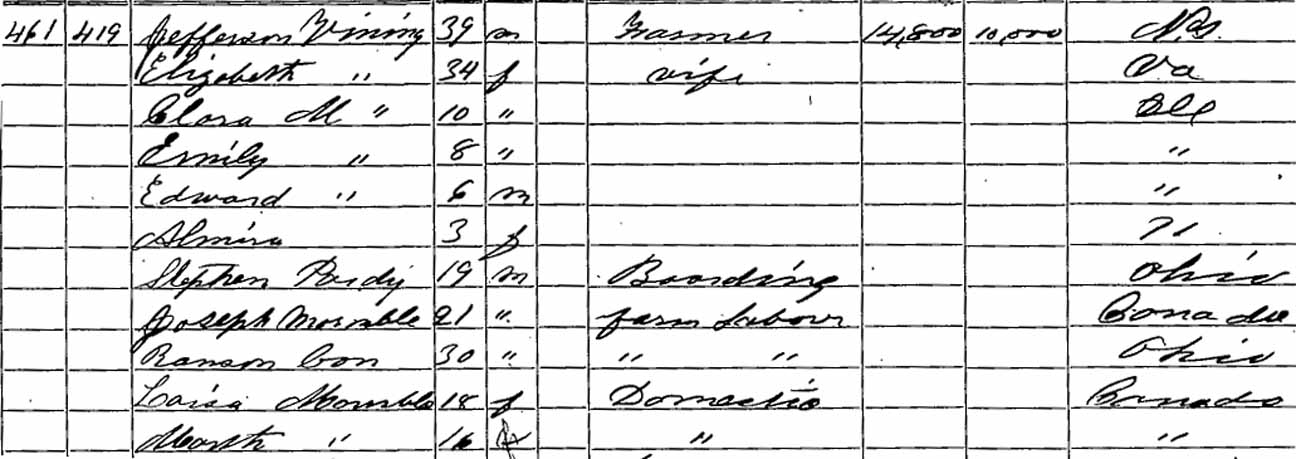 461 419 Jefferson Vining 39 m Farmer 14,800 10,000 N.Y.
Elizabeth " 34 f wife Va
Clara M " 10 " Ill
Emily " 8 " "
Edward " 6 m "
Almira 3 f "
Stephen 19 m Boarding Ohio
Joseph 21 " farm Labour Canada
Ranson 30 " " " Ohio
18 f Domestic Canada
" 16 f " "